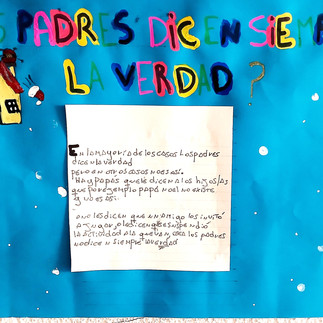 S PADRES DICEN SIEM
LA VERDAD?
En la mayoria de los casos los padres
dicen la verdad
pero en otros casos no es asi.
Hay papás que le dicen a los hijos/as
que por ejemplo papa noel no existe
y no es asi.
o no les dicen que un amigo los invitó
a jugar, o les dicen que se suspendió
la actividad a la que van, osea los padres
no dicen siempre la verdad